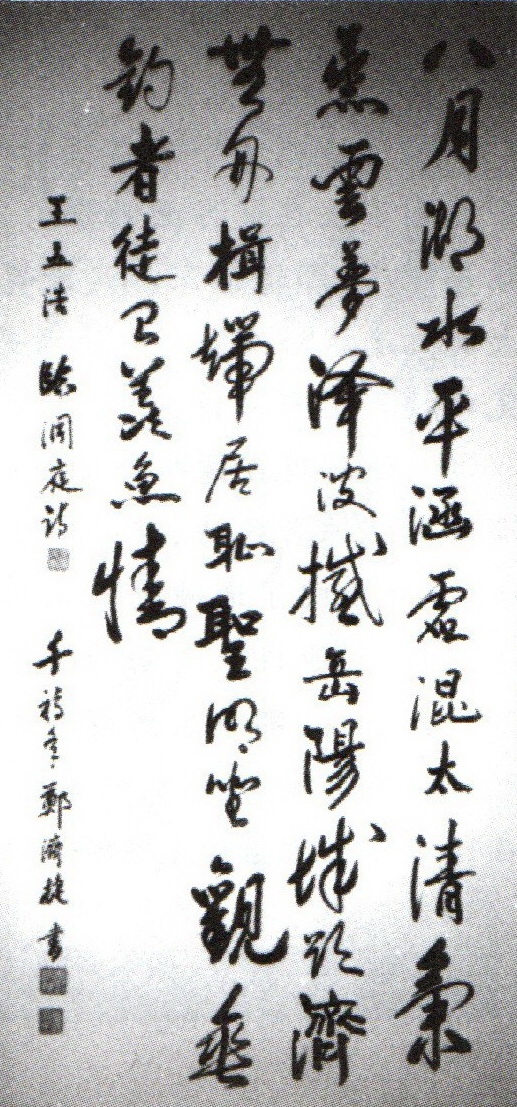 八月湖水平涵虛混太清氣
蒸雲夢澤波撼岳陽城欲濟
無舟楫端居恥聖明坐觀垂
釣者徒有羨魚情
王五浩 臨洞庭詩 千禧年 鄭濟 書